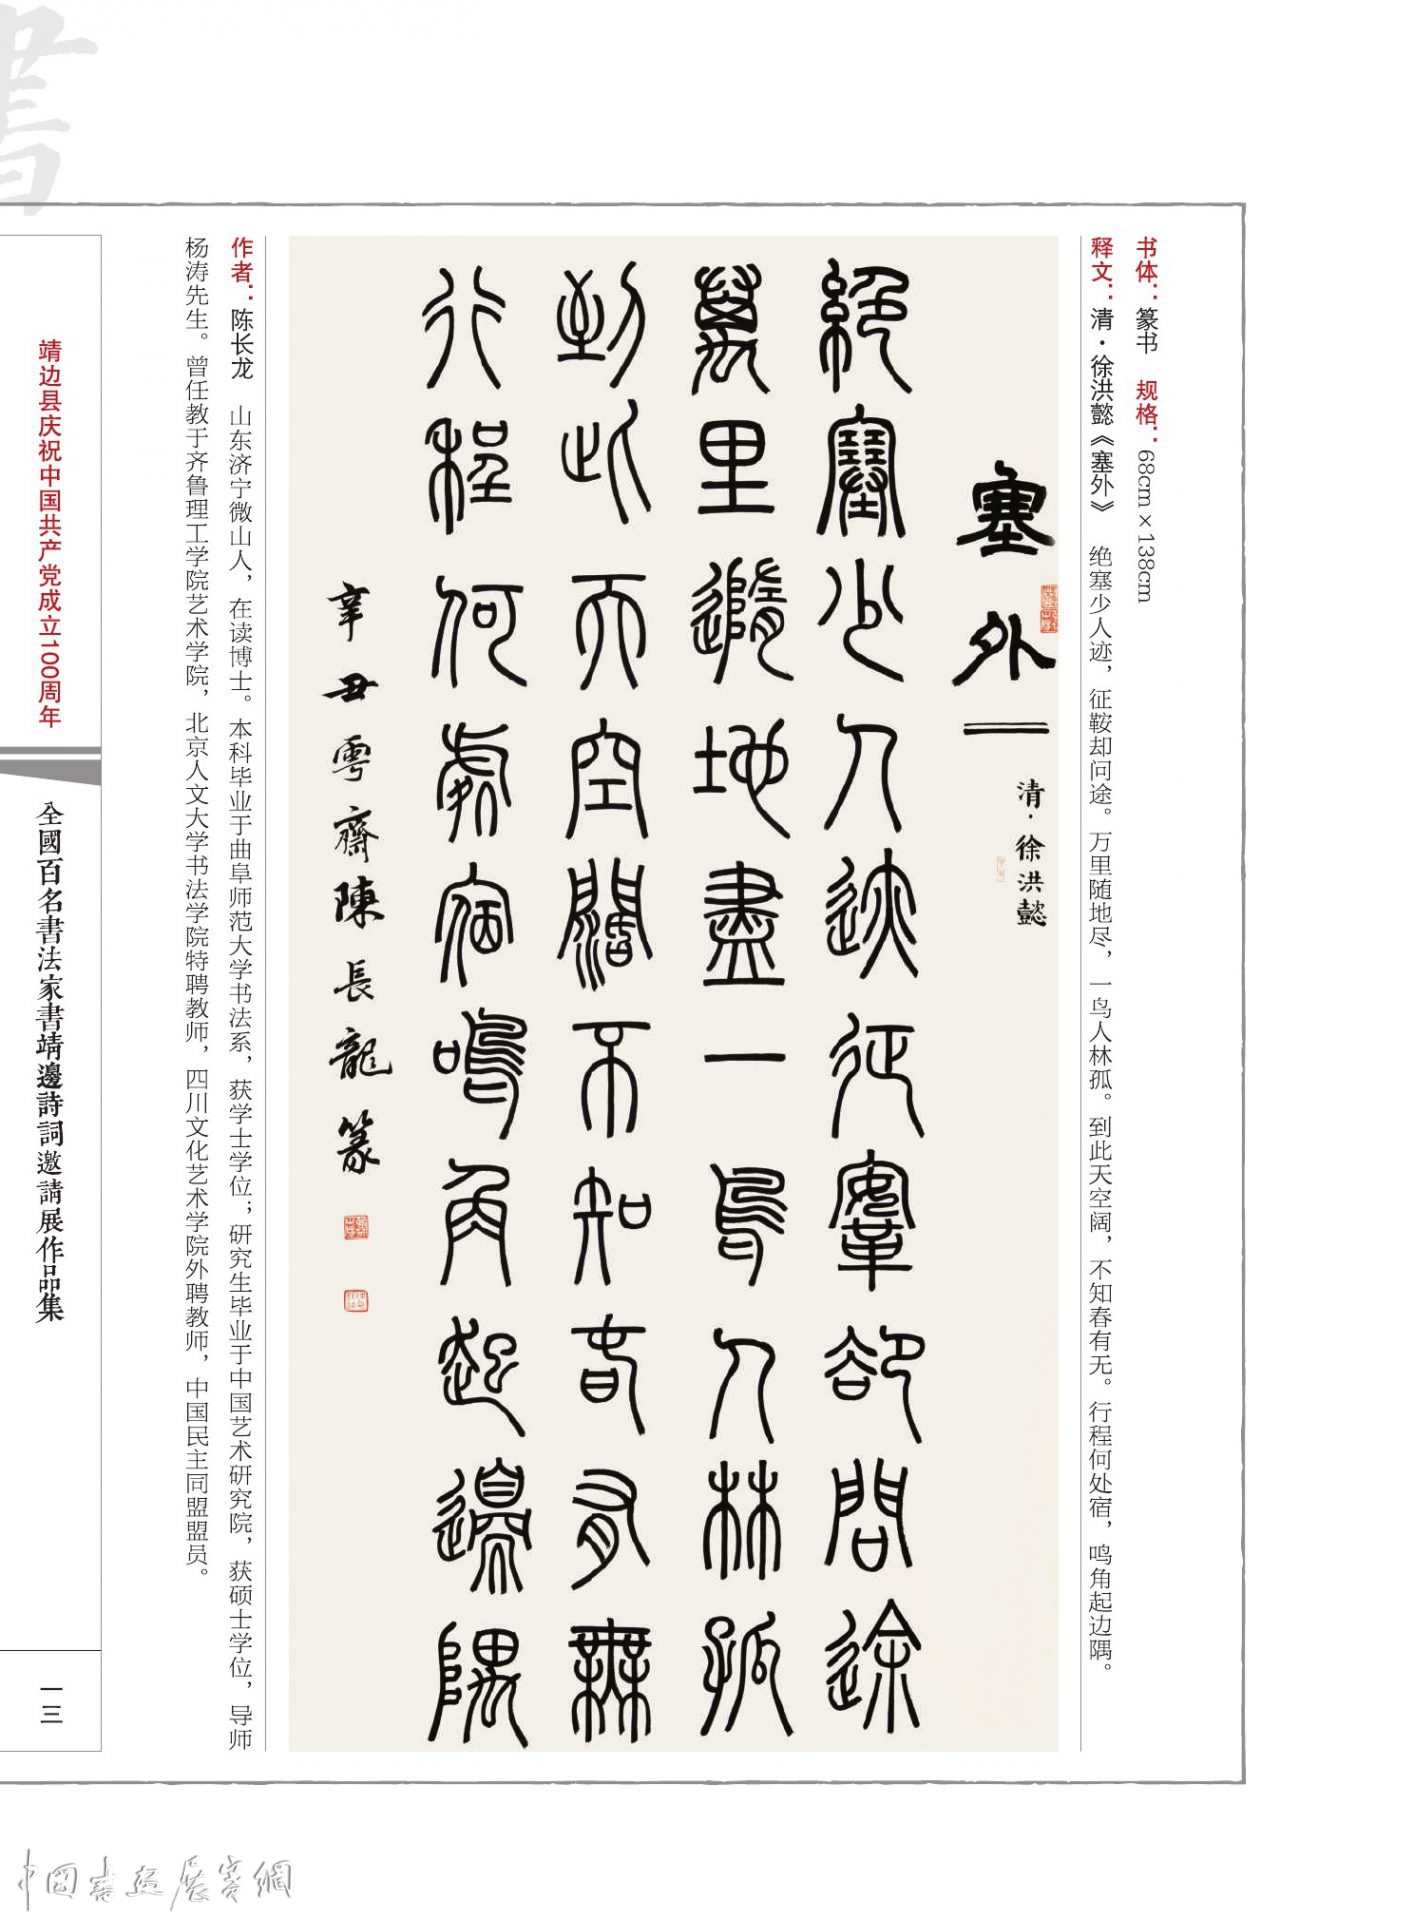 书体：篆书　规格：68cm×138cm
释文：清·徐洪懿《塞外》　绝塞少人迹，征鞍却问途。万里随地尽，一鸟人林孤。到此天空阔，不知春有无。行程何处宿，鸣角起边隅。
塞外
清·徐洪懿
絕塞少人迹征鞌卻問途
萬里隨地盡一鳥人林孤
到此天空闊不知春有無
行程何處宿鳴角起邊隅
辛丑雩齋陳長龍篆
作者：陈长龙　山东济宁微山人，在读博士。本科毕业于曲阜师范大学书法系，获学士学位；研究生毕业于中国艺术研究院，获硕士学位，导师
杨涛先生。曾任教于齐鲁理工学院艺术学院，北京人文大学书法学院特聘教师，四川文化艺术学院外聘教师，中国民主同盟盟员。
靖边县庆祝中国共产党成立100周年
全國百名書法家書靖邊詩詞邀請展作品集
一三
書
中國書画展賽網